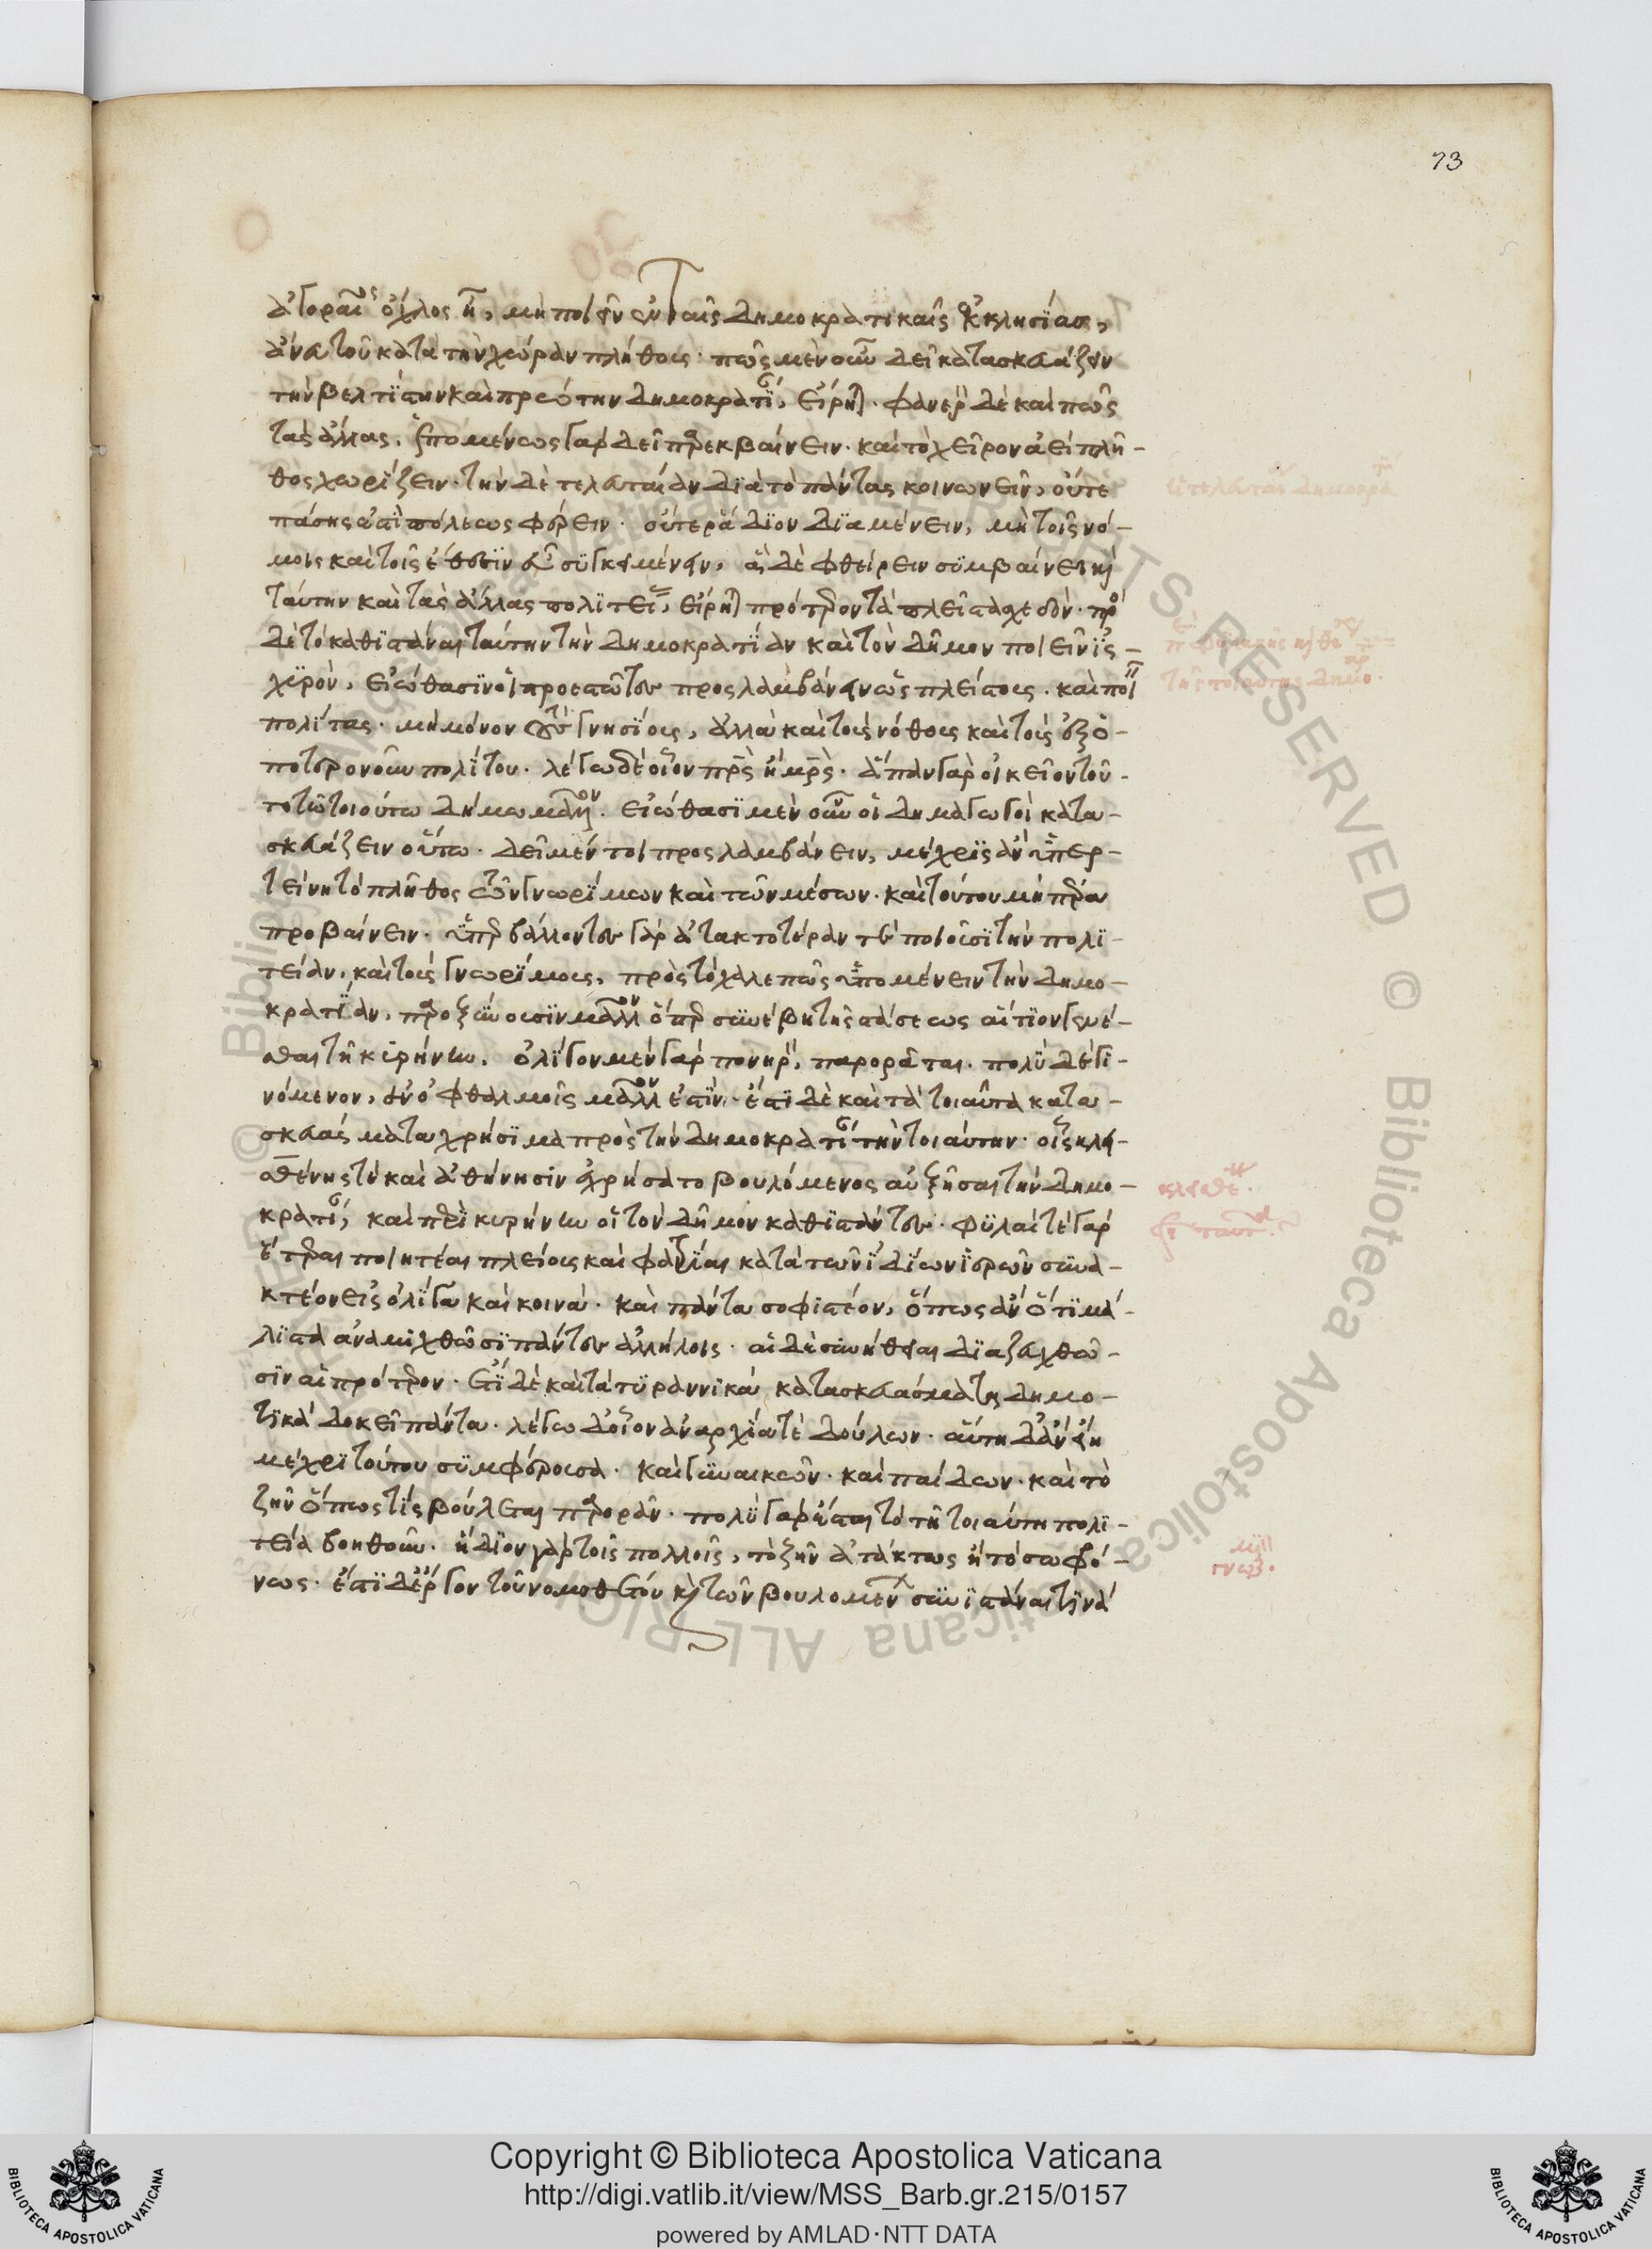 73
ἀγοραῖος ὄχλος ᾖ, μὴ ποιεῖν ἐν ταῖς δημοκρατικαῖς ἐκκλησίας,
ἄνευ τοῦ κατὰ τὴν χώραν πλήθους· πῶς μὲν οὖν δεῖ κατασκευάζειν
τὴν βελτίστην καὶ πρώτην δημοκρατίαν, εἴρηται· φανερὸν δὲ καὶ πῶς
τὰς ἄλλας. ἑπομένως γὰρ δεῖ παρεκβαίνειν· καὶ τὸ χεῖρον ἀεὶ πλῆ-
θος χωρίζειν· τὴν δὲ τελευταίαν διὰ τὸ πάντας κοινωνεῖν, οὔτε
πάσης ἐστὶ πόλεως φέρειν· οὔτε ῥάδιον διαμένειν, μὴ τοῖς νό-
μοις καὶ τοῖς ἔθεσιν εὖ συγκειμένην, ἃ δὲ φθείρειν συμβαίνει καὶ
ταύτην καὶ τὰς ἄλλας πολιτείας, εἴρηται πρότερον τὰ πλεῖστα σχεδόν· πρὸς
δὲ τὸ καθιστάναι ταύτην τὴν δημοκρατίαν καὶ τὸν δῆμον ποιεῖν ἰς-
χυρόν, εἰώθασιν οἱ προεστῶτες προςλαμβάνειν ὡς πλείστους· καὶ ποιεῖν
πολίτας· μὴ μόνον τοὺς γνησίους, ἀλλὰ καὶ τοὺς νόθους καὶ τοὺς ἐξ ὁ-
ποτερονοῦν πολίτου· λέγω δὲ οἷον πατρὸς ἢ μητρός· ἅπαν γὰρ οἰκεῖον τοῦ-
το τῶ τοιούτω δήμω μᾶλλον· εἰώθασι μὲν οὖν οἱ δημαγωγοὶ κατα-
σκευάζειν οὕτω· δεῖ μέντοι προςλαμβάνειν, μέχρις ἂν ὑπερ-
τείνη τὸ πλῆθος τῶν γνωρίμων καὶ τῶν μέσων· καὶ τούτου μὴ πέρα
προβαίνειν· ὑπερβάλλοντες γὰρ ἀτακτοτέραν τε ποιοῦσι τὴν πολι-
τείαν, καὶ τοὺς γνωρίμους, πρὸς τὸ χαλεπῶς ὑπομένειν τὴν δημο-
κρατίαν, παροξύνουσιν μᾶλλον ὅπερ συνέβη τῆς στάσεως αἴτιον γενέ-
σθαι τῆ κυρήνην. ὀλίγον μὲν γὰρ πονηρόν, παρορᾶται. πολὺ δὲ γι-
νόμενον, ἐν ὀφθαλμοῖς μᾶλλον ἐστίν· ἔστι δὲ καὶ τὰ τοιαῦτα κατα-
σκευάσματα χρήσιμα πρὸς τὴν δημοκρατίαν τὴν τοιαύτην· οἷς κλει-
σθένης τε καὶ ἀθήνησιν ἐχρήσατο βουλόμενος αὐξῆσαι τὴν δημο-
κρατίαν, καὶ περὶ κυρήνην οἱ τὸν δῆμον καθιστάντες· φυλαί τε γὰρ
ἕτεραι ποιητέαι πλείους καὶ φατρίαι κατὰ τῶν ἰδίων ἱερῶν συνα-
κτέον εἰς ὀλίγα καὶ κοινά· καὶ πάντα σοφιστέον, ὅπως ἂν ὅτι μά-
λιστα ἀναμιχθῶσι πάντες ἀλλήλοις· αἱ δὲ συνήθειαι διαζευχθῶ-
σιν αἱ πρότερον· ἔτι δὲ καὶ τὰ τυραννικὰ κατασκευάσματα δημο-
τικὰ δοκεῖ πάντα· λέγω δ' οἷον ἀναρχία τὲ δούλων· αὕτη δ' ἂν εἴη
μέχρι τούτου συμφέρουσα· καὶ γυναικῶν· καὶ παίδων· καὶ τὸ
ζῆν ὅπως τὶς βούλεται παρορᾶν· πολὺ γὰρ ἔσται τὸ τῆ τοιαύτη πολι-
τεία βοηθοῦν· ἥδιον γὰρ τοῖς πολλοῖς, τὸ ζῆν ἀτάκτως ἢ τὸ σωφρό-
νως· ἔστι δ' ἔργον τοῦ νομοθέτου καὶ τῶν βουλομένων συνιστάναι τινὰ
Copyright © Biblioteca Apostolica Vaticana
http://digi.vatlib.it/view/MSS_Barb.gr.215/0157
powered by AMLAD·NTT DATA
BIBLIOTECA APOSTOLICA VATICANA
BIBLIOTECA APOSTOLICA VATICANA